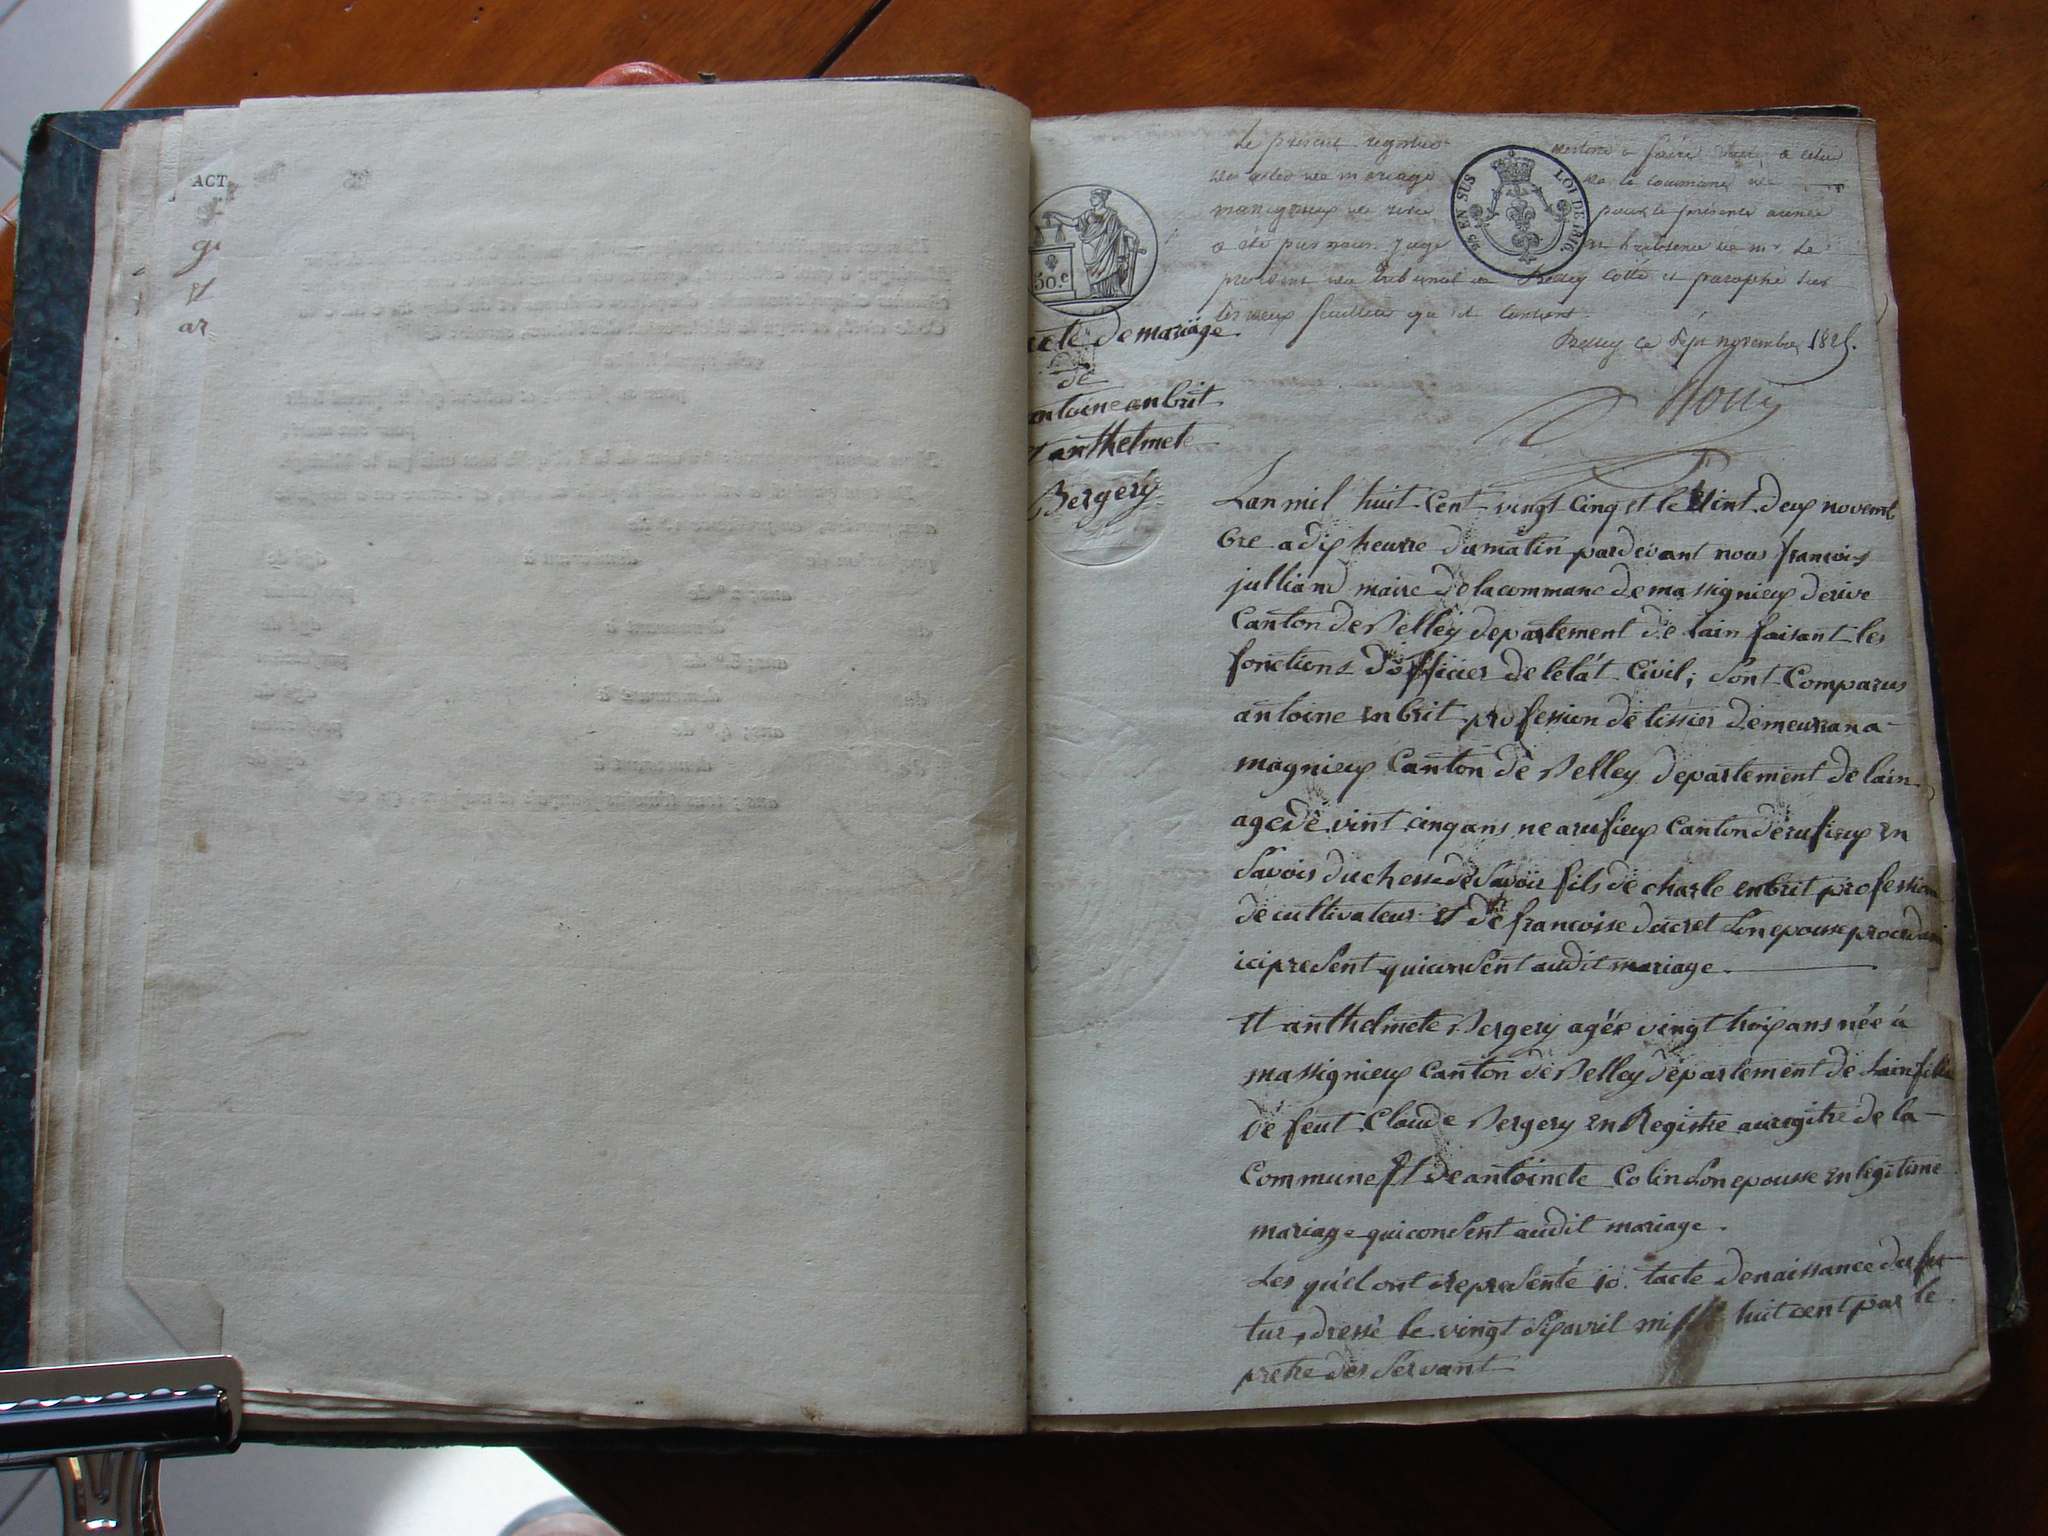 ACT
Le present registre destiné a faire suite a celui
des actes de mariage de la commune de
massigneux de rive pour la presente année
a été par nous juge en l'absence de mr le
president du tribunal de Belley cotté et paraphé sur
les deux feuillets qu'il contient.
Belley ce sept novembre 1825.
25 EN SUS LOI DE 1816
50.c
acte de mariage
de
antoine anbrit
et anthelmete
Bergery
Lan mil huit Cent vingt Cinq et le Vint deux novem
bre a dix heurre du matin pardevant nous francois
julliand maire de la commane de massignieux derive
Canton de Belley departement de lain faisant les
fonctions d'officier de l'etat Civil; Sont Comparus
antoine enbrit profession de tissier demeuran a
magnieux Canton de Belley departement de lain
agé de vint cinq ans ne a rufieux Canton de rufieux en
Savois duchesse de Savoir fils de charle enbrit profession
de cultivateur et de francoise ducret Son epousse
ici present qui consent audit mariage.
Et anthelmete Bergery agée vingt troix ans née à
massignieux Canton de Belley departement de Lain fille
de feut Cloude Bergery en Registre au regitre de la
Commune Et de antoinete Colin Son epousse en legitime
mariage qui consent audit mariage.
Les qu'el ont representé 10. lacte de naissance du fu
tur, dressé le vingt six avril mille huit cent par le
pretre des Servant